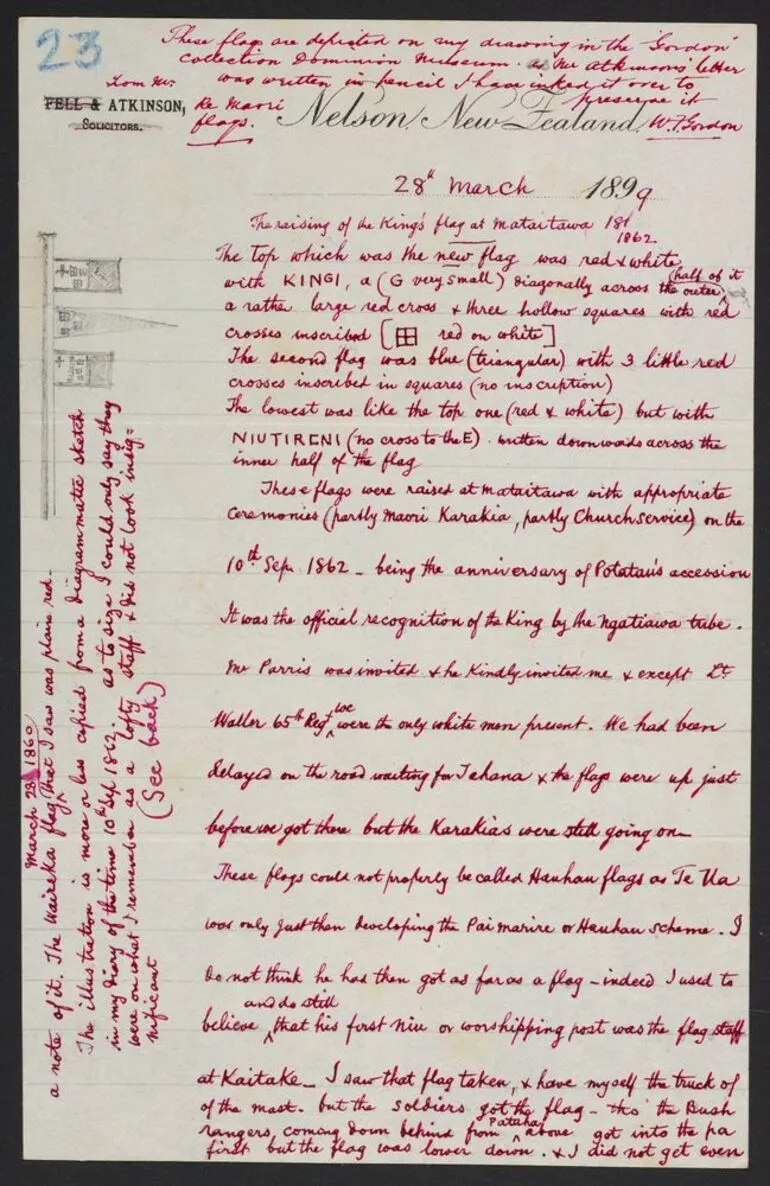 23
These flags are depicted on my drawing in the "Gordon"
collection Dominion Museum. as Mr Atkinson's letter
was written in pencil I have inked it over to
preserve it
W.F. Gordon
From Mr.
FELL & ATKINSON,
SOLICITORS.
Re Maori
flags.
Nelson, New Zealand,
28th March 1899
The raising of the King's flag at Mataitawa
1862.
The top which was the new flag was red & white
with KINGI, a (G very small) diagonally across the outer half of it
a rather large red cross & three hollow squares with red
crosses inscribed [ red on white]
The second flag was blue (triangular) with 3 little red
crosses inscribed in squares (no inscription)
The lowest was like the top one (red & white) but with
NIUTIRENI (no cross to the E) written downwards across the
inner half of the flag
These flags were raised at Mataitawa with appropriate
ceremonies (partly Maori Karakia, partly Church service) on the
10th Sep. 1862 – being the anniversary of Potatau's accession
It was the official recognition of the King by the Ngatiawa tribe.
Mr Parris was invited & he kindly invited me & except Lt
Waller 65th Regt we were the only white men present. We had been
delayed on the road waiting for Tehana & the flags were up just
before we got there but the Karakias were still going on –
These flags could not properly be called Hauhau flags as Te Ua
was only just then developing the Pai marire or Hauhau scheme. I
do not think he had then got as far as a flag – indeed I used to
and do still
believe that his first niu or worshipping post was the flag staff
at Kaitake – I saw that flag taken, & have myself the truck of
of the mast. but the soldiers got the flag – tho' the Bush
rangers, coming down behind from Patuha above got into the pa
first but the flag was lower down. & I did not get even
a note of it. The Waireka flag that I saw was plain red.
March 28 1860
The illustration is more or less copied from a diagrammatic sketch
in my diary of the time 10th Sep 1862. as to size I could only say they
were on what I remember as a lofty staff & did not look insig=
nificant
(See back)